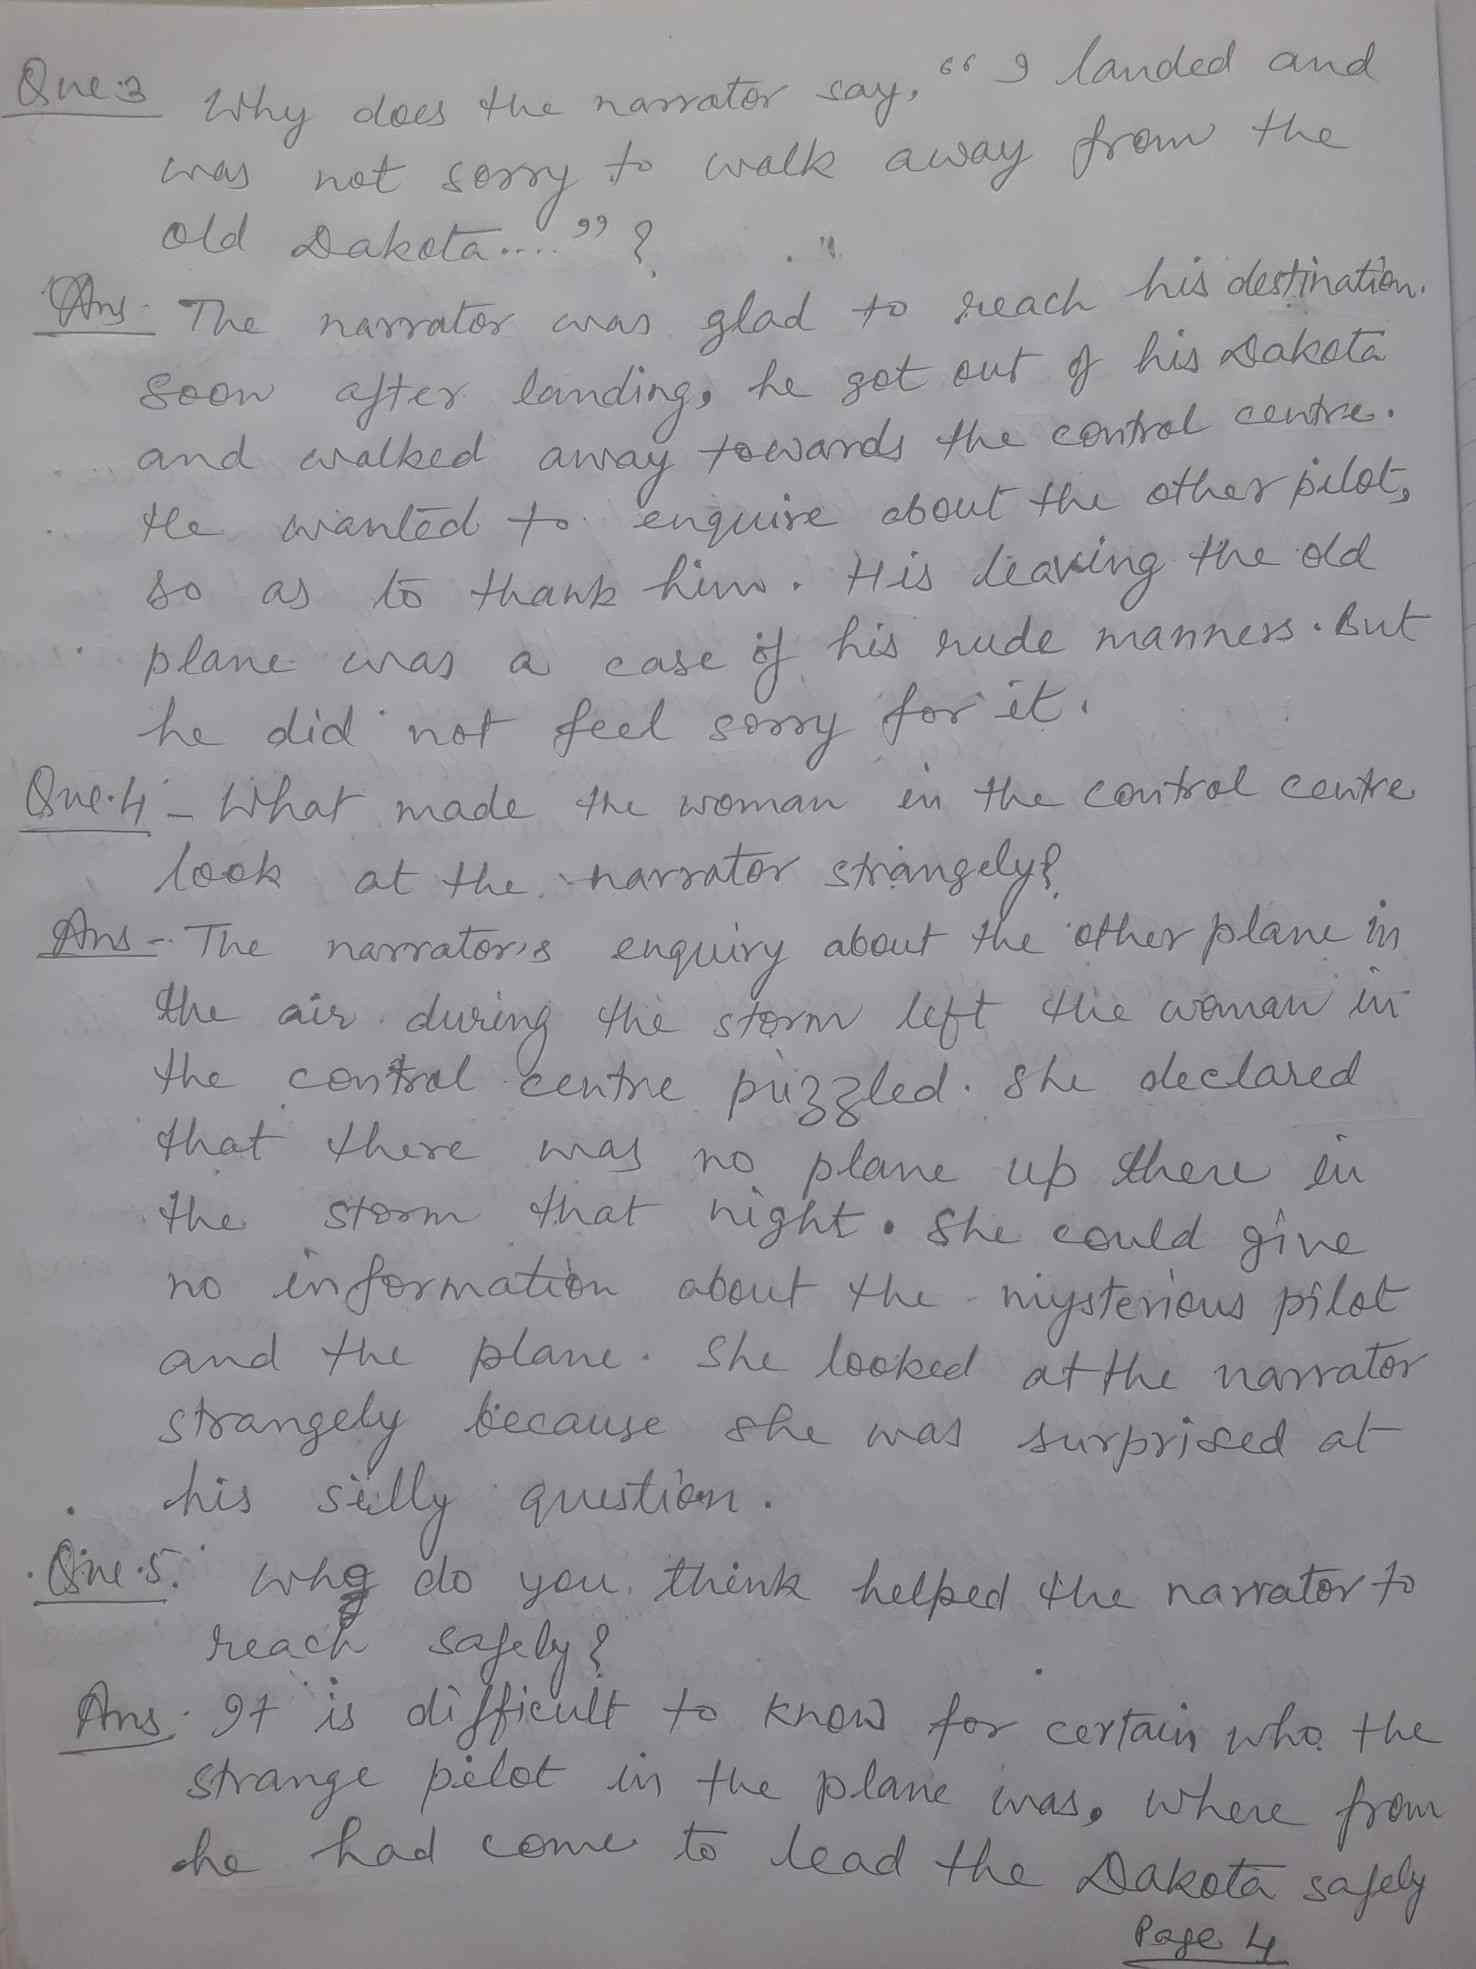 Que.3 Why does the narrator say, "I landed and
was not sorry to walk away from the
old Dakota...."?
Ans- The narrator was glad to reach his destination.
Soon after landing, he got out of his Dakota
and walked away towards the control centre.
He wanted to enquire about the other pilot,
so as to thank him. His leaving the old
plane was a case of his rude manners. But
he did not feel sorry for it.
Que.4 - What made the woman in the control centre
look at the narrator strangely?
Ans - The narrator's enquiry about the other plane in
the air during the storm left the woman in
the control centre puzzled. She declared
that there was no plane up there in
the storm that night. She could give
no information about the mysterious pilot
and the plane. She looked at the narrator
strangely because she was surprised at
his silly question.
Que.5. Who do you think helped the narrator to
reach safely?
Ans. It is difficult to know for certain who the
strange pilot in the plane was, where from
he had come to lead the Dakota safely
Page 4